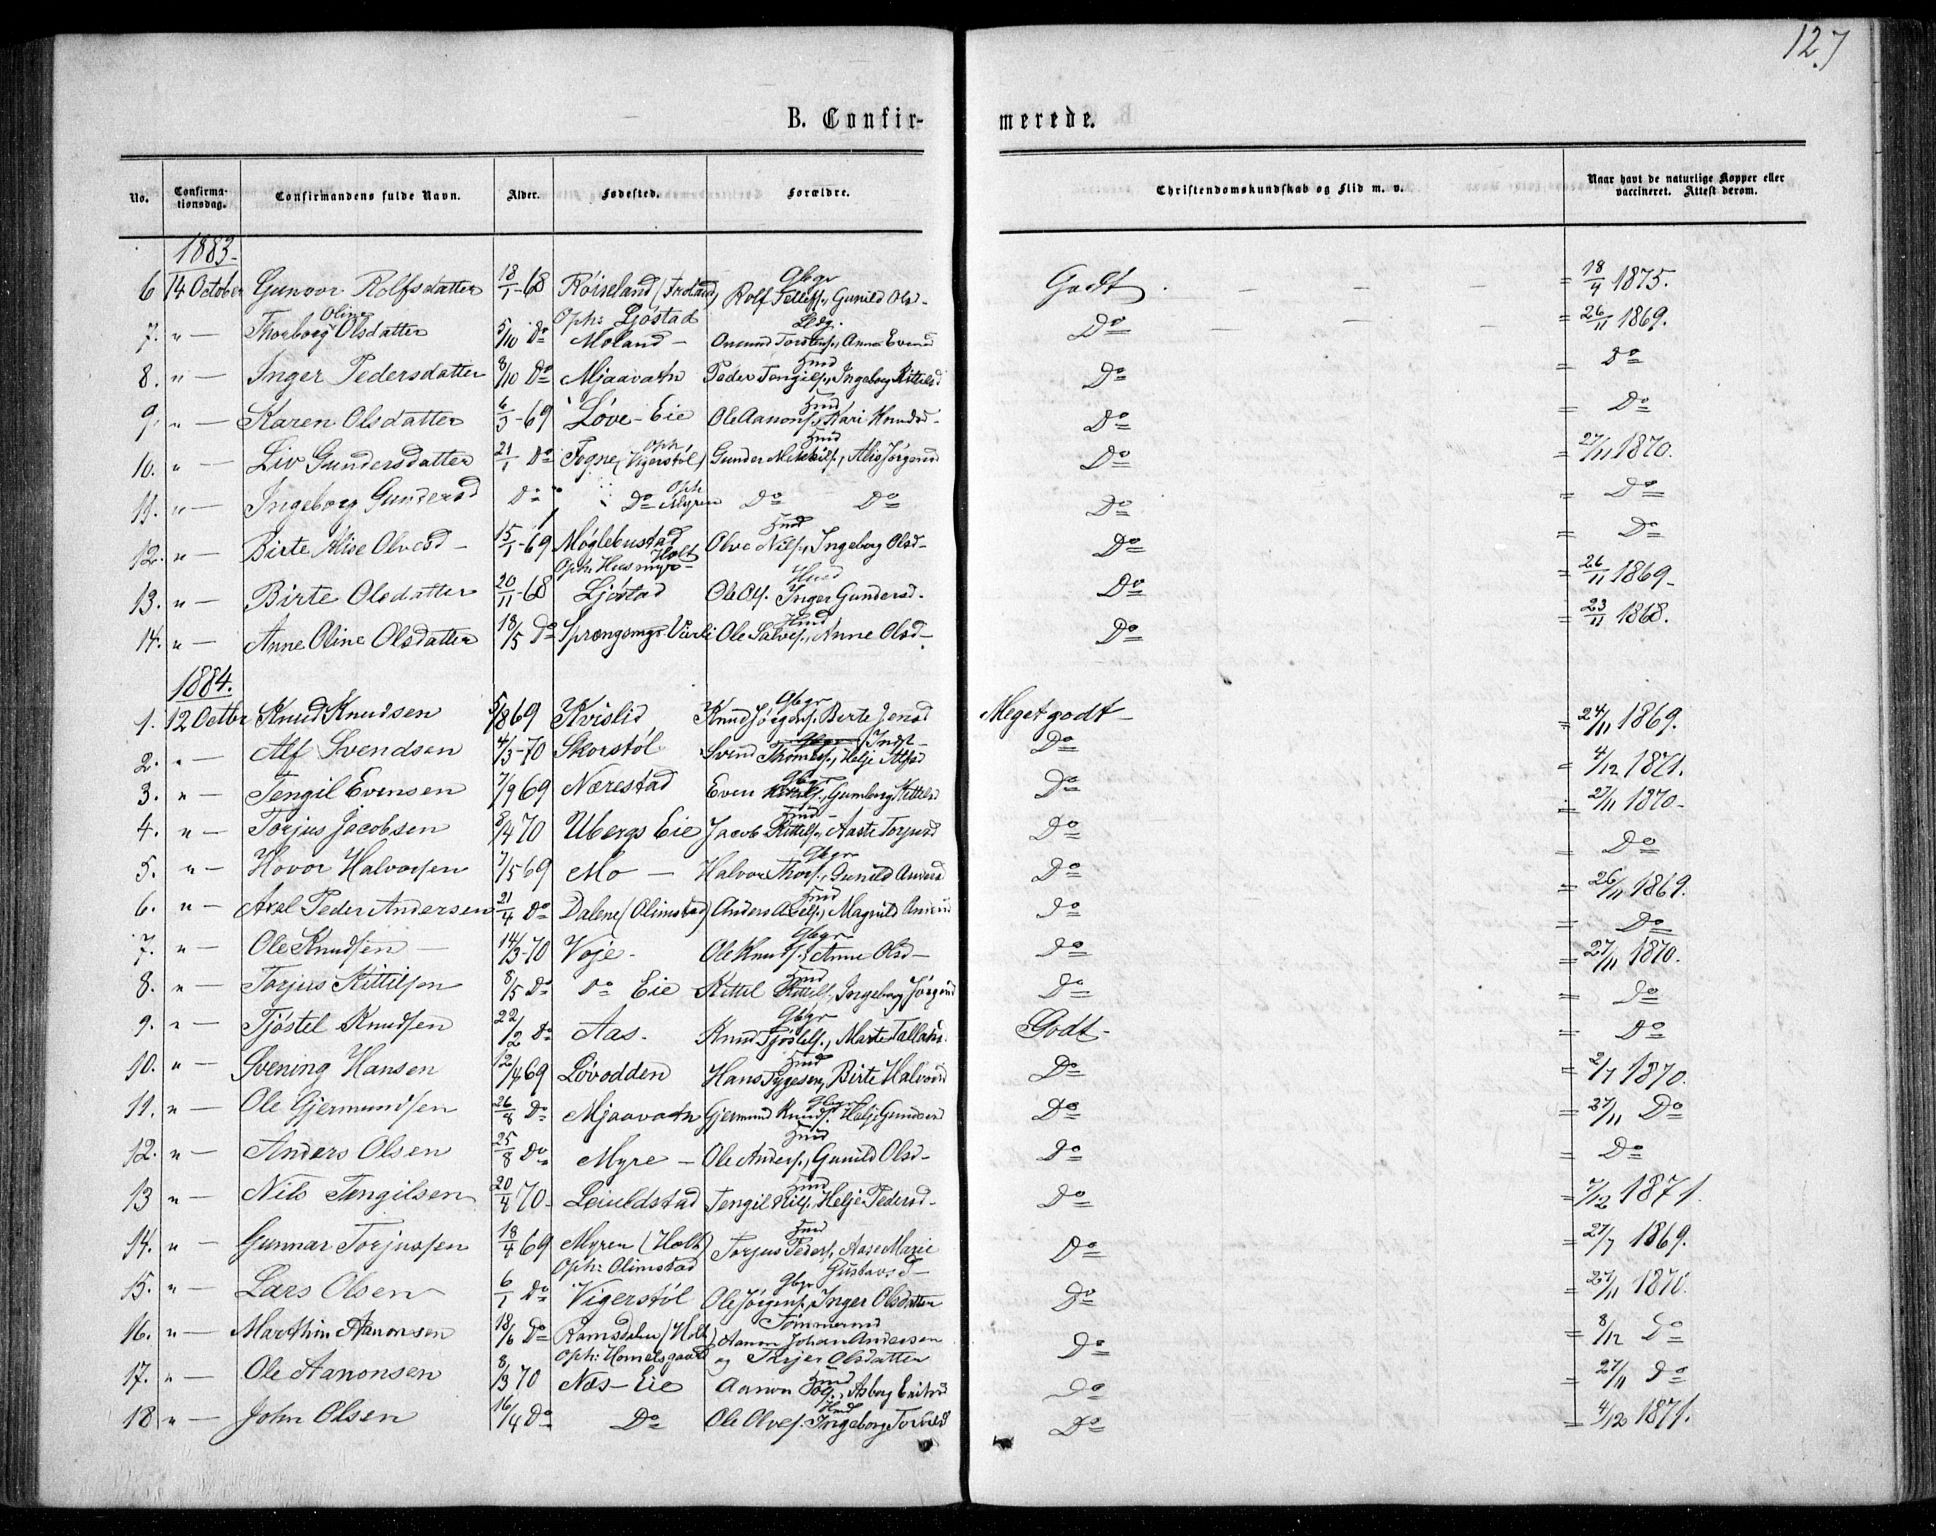 127
B. Confirmerede.
No. Confirmationsdag. Confirmandens fulde Navn. Alder. Fødested. Forældre. Christendomskundskab og Flid m. v. Naar havt de naturlige Kopper eller vaccineret. Attest derom.
1883.
6 14 October Gunvor Rolfsdatter 18/1-68 Røiseland (Froland) Gbgr Rolf Tellefs., Gunild Ols- Godt. — — — = 18/4 1875.
7. " — Thorborg Oline Olsdatter 5/10 Do Oph: Ljøstad Moland - Do — — — = 26/11 1869.
8. " — Inger Pedersdatter 8/10 Do Mjaavatn Hmd Peder Tengilss., Ingeborg Kittelsd Do = Do
9. " — Karen Olsdatter 6/3-69 Løve-Eie Hmd Ole Aanons., Kari Knudsd- Do = Do
10. " — Liv Gundersdatter 21/1 Do Togne (Oph Vigerstøl) Hmd Gunder Mikkils., Alis Jørgensd Do = 27/11 1870.
11. " — Ingeborg Gundersd Do " Do Oph Myren Do Do Do = Do
12. " — Birte Alise Olvesd- 15/1-69 Møglebustad Holt Hmd Olve Nils., Ingeborg Olsd- Do = Do
13. " — Birte Olsdatter 20/11-68 Oph: Husmyr- Ljøstad Hmd Ole Ols. Inger Gundersd. Do = 26/11 1869-
14. " — Anne Oline Olsdatter 18/5 Do Hmd Ole Salves., Anne Olsd- Do = 23/11 1868.
1884.
1. 12 Octbr Knud Knudsen 5/8 69 Kvislid Gbgr Knud Jørgens., Birte Jensd Meget godt- = 24/11 1869.
2. " — Alf Svendsen 4/3-70 Skorstøl Svend Thomess., Helje Alfsd Do = 4/12 1871.
3. " — Tengil Evensen 7/9 69 Nærestad Gbgr Even Kittils., Gumborg Kittelsd Do = 27/11 1870-
4. " — Torjus Jacobsen 8/4 70 Ubergs Eie Hmd Jacob Kittels., Aaste Torjusd Do = Do
5. " — Hovor Halvorsen 7/5 69 Mo — Gbgr Halvor Thors., Gunild Andersd Do = 26/11 1869.
6. " — Axel Peder Andersen 21/4 Do Dalene (Olimstad) Hmd Anders Axels., Magnild Do = Do
7. " — Ole Knudsen — 14/3-70 Voje- Gbgr Ole Knuds., Anne Olsd- Do = 27/11 1870.
8. " — Torjus Kittilsen 8/5 Do Do Eie Hmd Kittel Kittils., Ingeborg Jørgensd Do = Do
9. " — Tjøstel Knudsen 22/2 Do Aas. Gbgr Knud Tjøstels., Marte Tallaks. Godt- = Do
10. " — Svening Hansen 12/4 69 Løvodden Hmd Hans Tygesen, Birte Halvorsd Do = 2/7 1870.
11. " — Ole Gjermundsen 26/8 Do Mjaavatn Gbgr Gjermund Knuds. Helje Gundersd Do = 27/11 Do
12. " — Anders Olsen 25/8 Do Myre — Hmd Ole Anders., Gunild Olsd- Do = Do
13 " — Nils Tengilsen 20/4 70- Leiuldstad Hmd Tengil Nils., Helje Pedersd- Do = 7/12 1871.
14. " — Gunnar Torjussen 18/4 69 Myren (Holt) Oph: Olimstad Hmd Torjus Peders., Aase Marie Gustavsd- Do = 27/7 1869.
15. " — Lars Olsen 6/1 Do Vigerstøl Gbgr Ole Jørgens., Inger Olsdatter Do = 27/11 1870
16. " — Marthin Aanonsen 18/6 Do Ramsdalen (Holt) Oph: Homelsgaard Tømmermd Aanon Johan Andersen og Terjer Olsdatter Do = 8/12 Do
17. " — Ole Aanonsen 8/3 70 Næs-Eie Hmd Aanon Asborg Do = 27/11 Do
18 " — John Olsen 16/4 Do Do Hmd Ole Olves., Ingeborg Do = 4/12 1871.